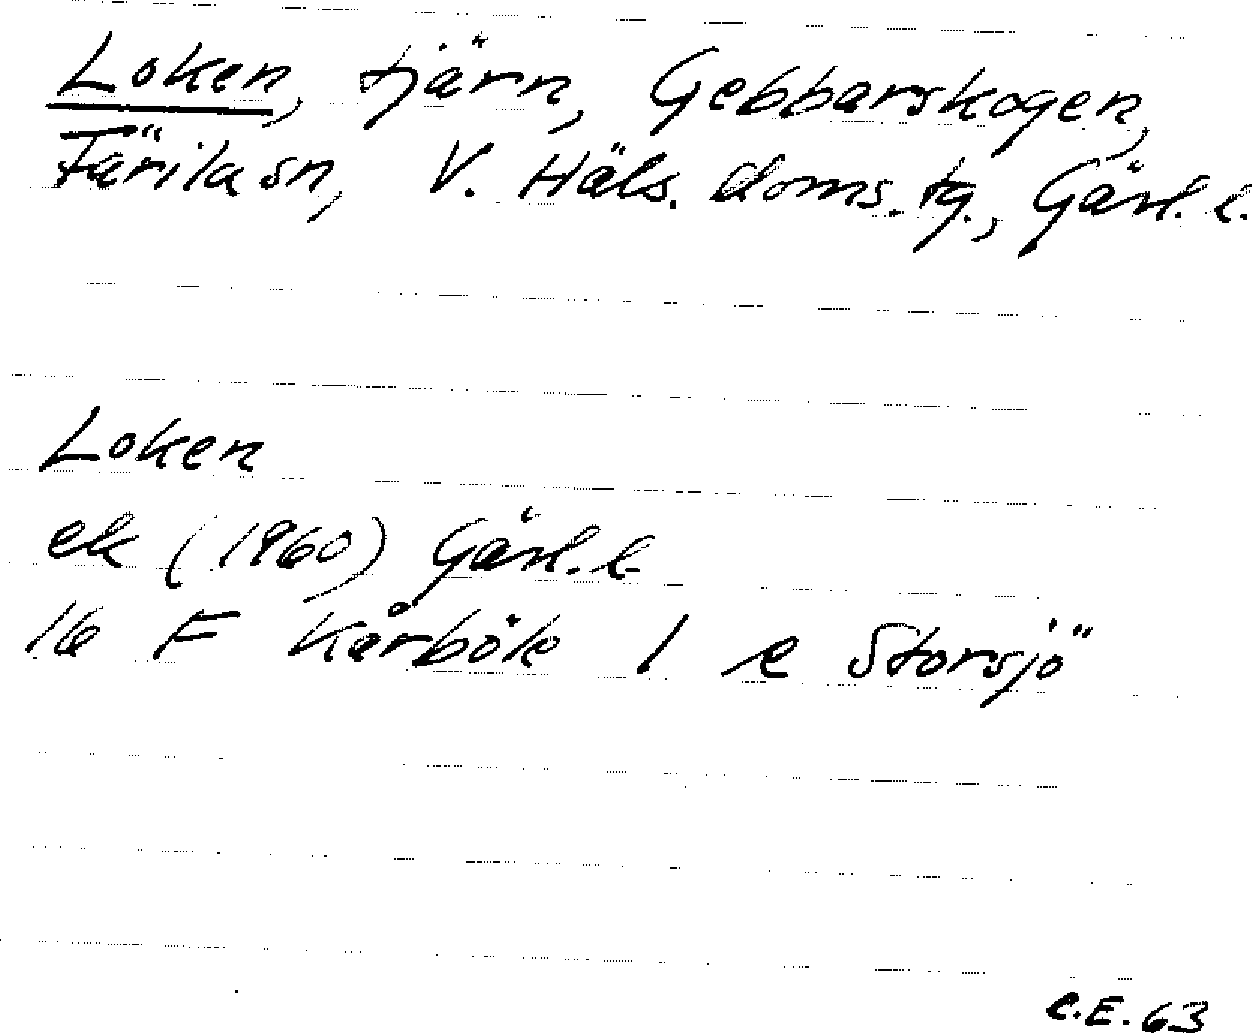 Loken, tjärn, Gebbarskogen,
Färila sn, V. Häls. doms. tg., Gävl. l.
Loken
ek (1960) Gävl. l.
16 F Kårböle 1 e Storsjö
C.E. 63